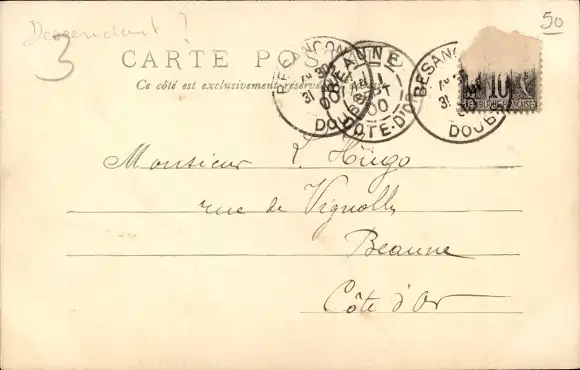 Descendant ?
50
3
CARTE POS
Ce côté est exclusivement réservé
BESANÇON
31
DOUBS
BEAUNE
00
CÔTE-D'OR
BESANÇON
31
DOUBS
10
Monsieur L. Hugo
rue de Vignolles
Beaune
Côte d'Or